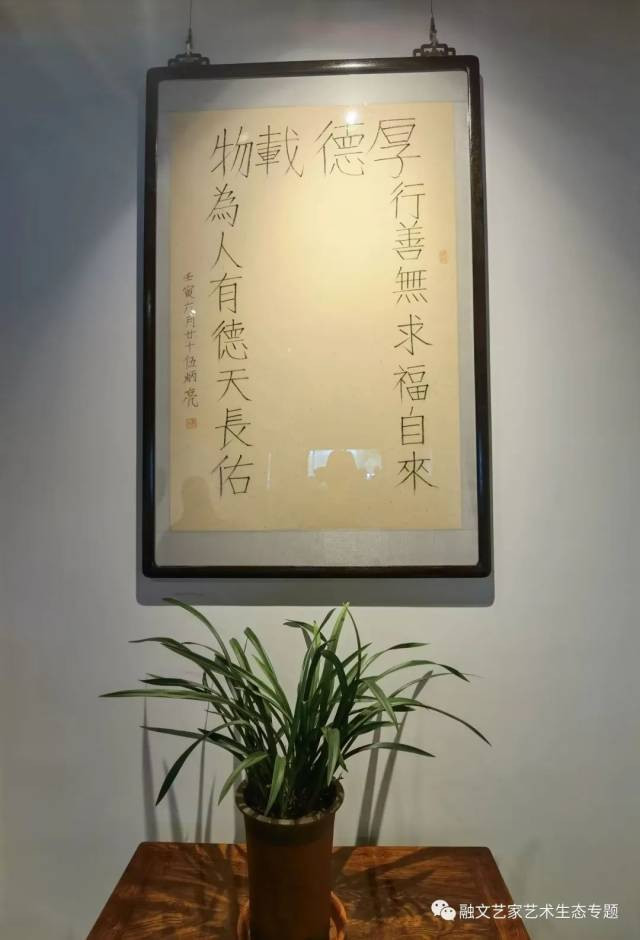 厚德載物
行善無求福自來
為人有德天長佑
壬寅六月廿十伍炳亮
融文艺家艺术生态专题